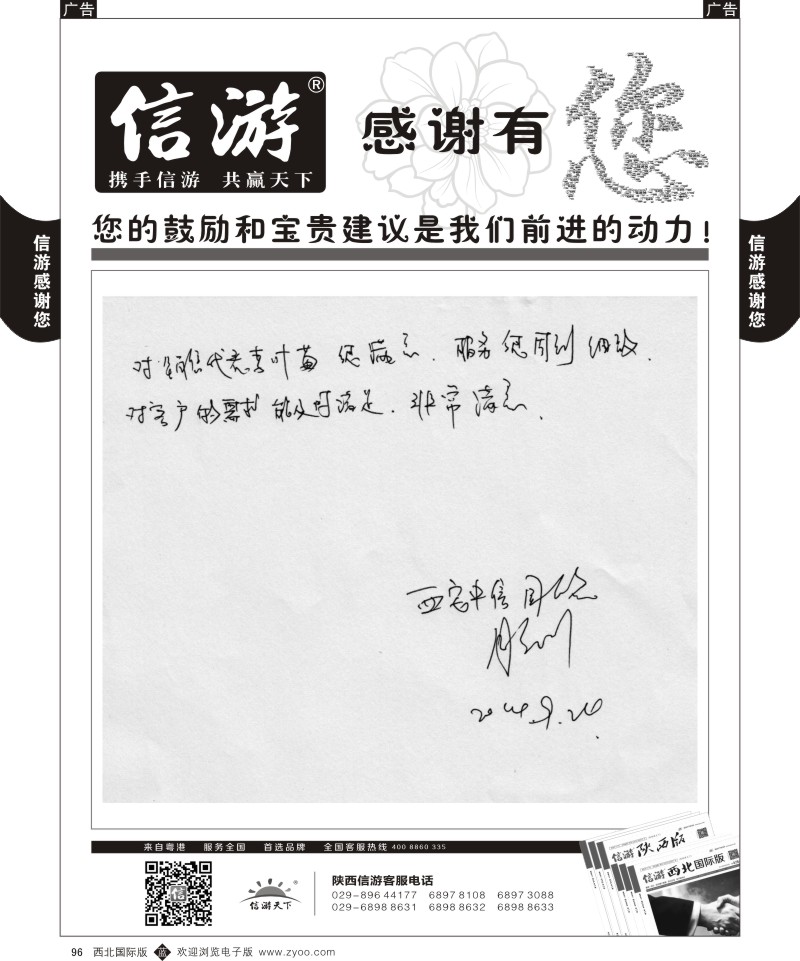 广告
广告
信游®
携手信游 共赢天下
感谢有您
您的鼓励和宝贵建议是我们前进的动力！
信游感谢您
信游感谢您
对 代表 叶苗 您满意. 服务您周到 细致.
对客户的需求 能及时满足. 非常满意.
西安中信国旅
来自粤港 服务全国 首选品牌 全国客服热线 400 8860 335
信游
信游天下
陕西信游客服电话
029-896 44177 6897 8108 6897 3088
029-6898 8631 6898 8632 6898 8633
信游 陕西版
信游 西北国际版
96 西北国际版 蓝 欢迎浏览电子版 www.zyoo.com